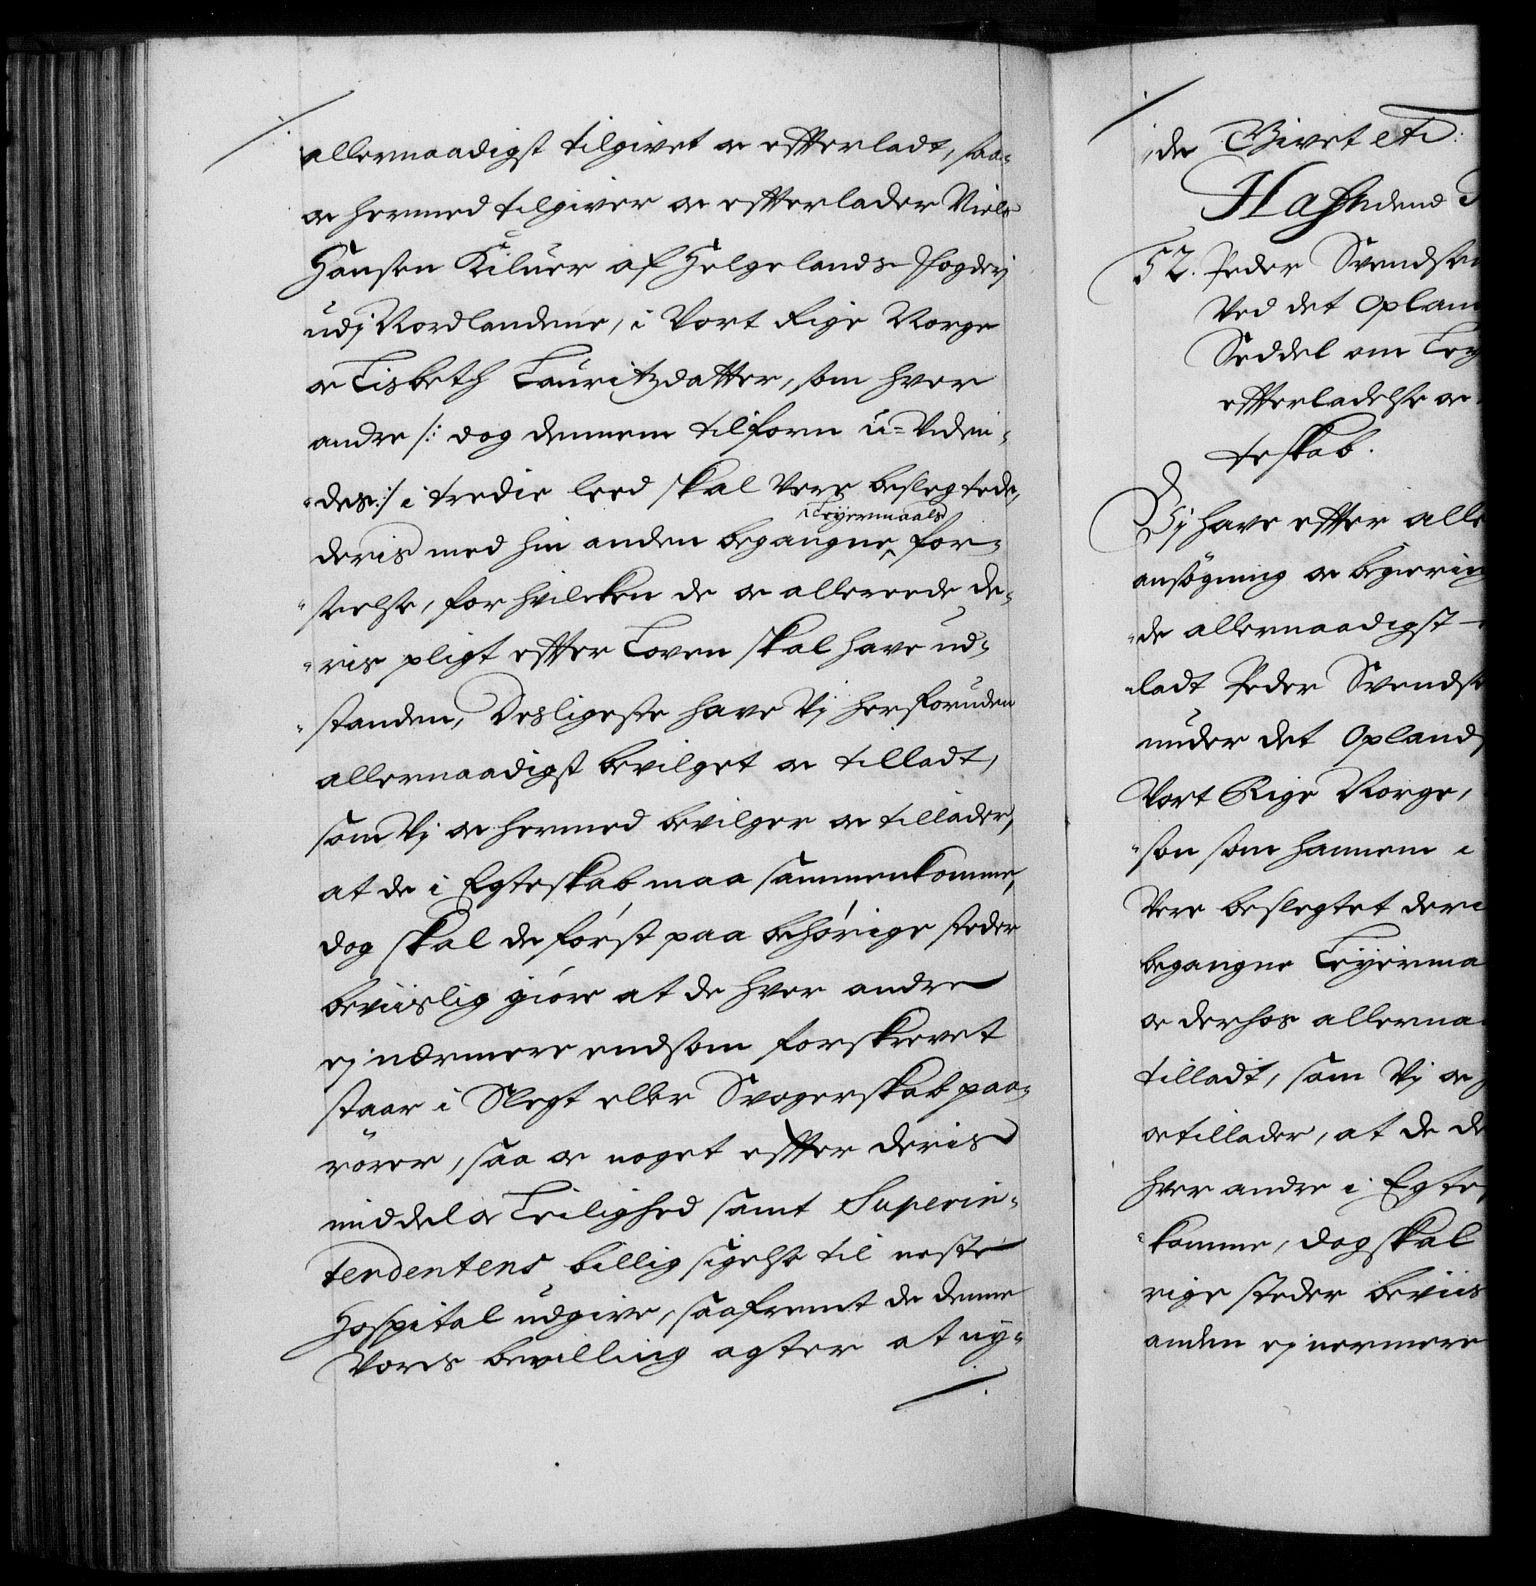 allernaadigst tilgivet oc efterladt, saa-
oc hermed tilgiver oc efterlader Niels
Hansen Kiluer af Helgelands Fogderj
udj Nordlandene, i Vort Rige Norge
oc Lisbeth Lauritzdatter, som hver
andre /: dog dennem tilforn u-viden-
des :/ i tredie leed skal være beslegtede,
Leyermaals
deris med hin anden begangne for-
seelse, for hvilcken de oc allereede de-
ris pligt efter Loven skal have ud-
standen, Desligeste have Vj herforuden
allernaadigst bevilget oc tilladt,
som Vj oc hermed bevilger oc tillader,
at de i Egteskab maa sammenkomme,
dog skal de först paa behörige steder
beviislig giöre at de hver andre
ej nærmere end som forskrevet
staar i Slegt eller Svogerskab paa-
rörer, saa oc noget efter deris
middel oc Leilighed samt Superin-
tendentens billig sigelse til neste
Hospital udgive, saafremt de denne
Vores bevilling agter at ny-
de Givet etc:
Hafn dend
52. Peder Svendsen
Ved det Oplan
Seddel om Ley
efterladelse oc
teskab.
Vj have efter alle
ansögning oc begiering
de allernaadigst
ladt Peder Svendse
under det Opland
Vort Rige Norge,
som hannem i
Vere beslegtet deri
begangne Leyerma
oc derhos allerna
tilladt, som Vj oc
oc tillader, at de de
hver andre i Egte
komme, dog skal
rige steder beviis
anden ej nermere